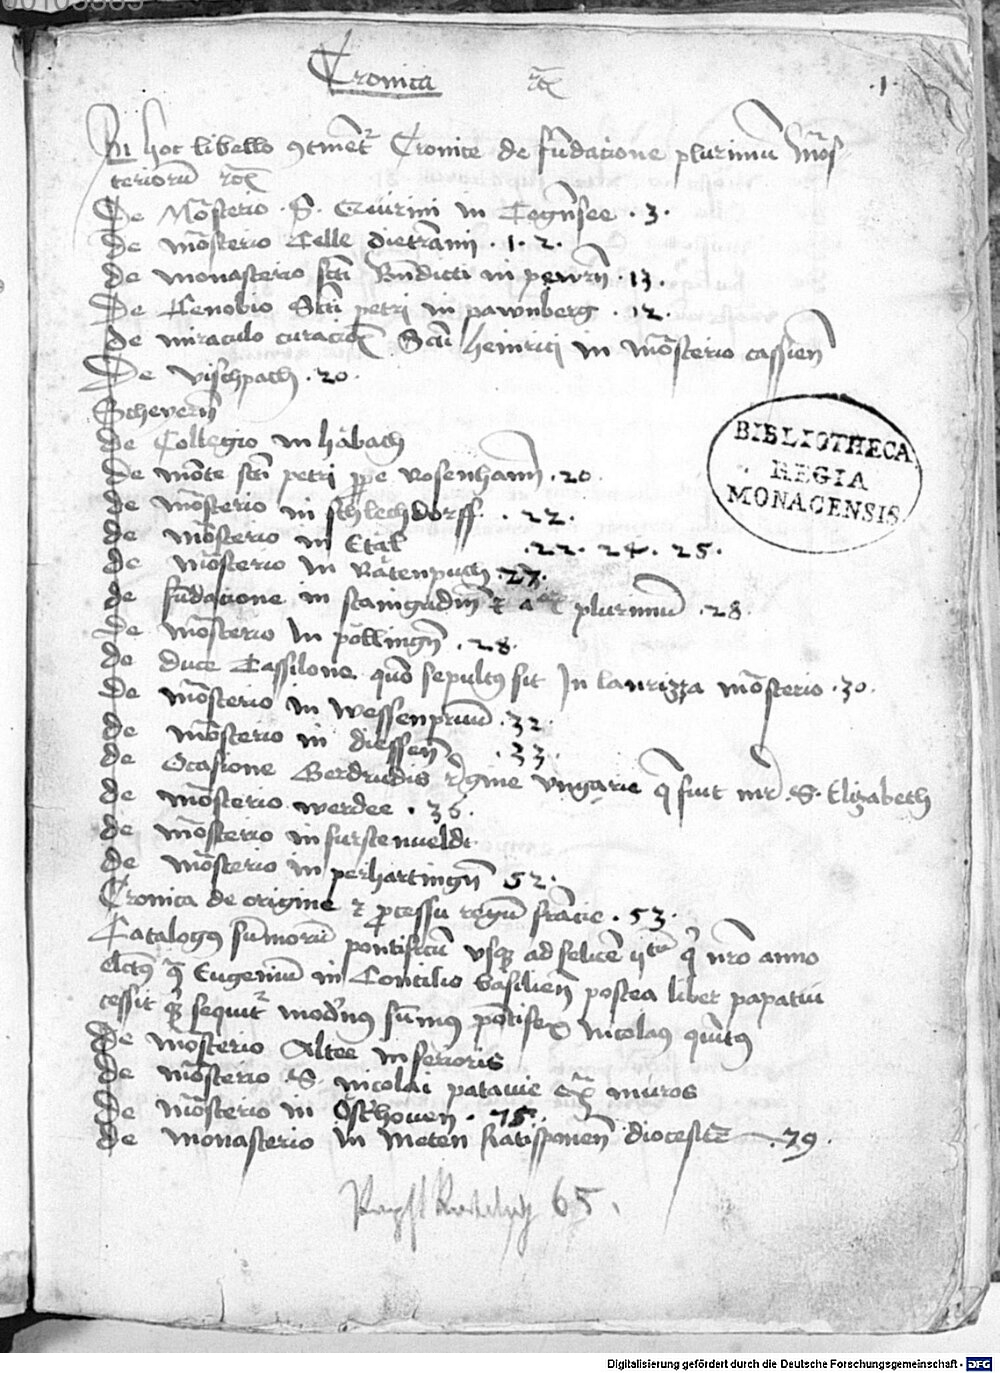 Cronica rc̄
.1.
In hoc libello ꝯtinēt᷑ Cronice de fūdacione plurimū mōs-
teriorū rc̄
De Mōsterio . S . Quirini in Tegn̄see . 3 .
de mōsterio Celle dietrāmi . 1 . 2 .
de monasterio sc̄ti Bn̄dicti in pewrn̄ . 13 .
De Cenobio Sc̄ti petri in pawnberg . 12 .
de miraculo curaciōis Sc̄ti heinrici in mōsterio cassien̄
De vischpach . 20 .
Scheyern̄
de Collegio in hābach
de mōte sc̄ti petri ꝓpe Rosenhaim̄ . 20 .
de mōsterio in schlechdorff . 22 .
de mōsterio in Etāl . 22 . 24 . 25 .
de mōsterio in Rātenpuch . 27 .
de fūdacione in staingadm̄ et plurimū . 28 .
de mōsterio in pollingn̄ . 28 .
de duce Tassilone quō sepultꝰ sit In laurizza mōsterio . 30 .
de mōsterio in wessenprūn . 32 .
de mōsterio in diessen̄ . 33 .
de Ocasione Gerdrudis rēgine Vngarie q̄ fuit mr̄ . S . Elizabeth
de mōsterio werdee . 36 .
de mōsterio in furstenueldt
de mōsterio in perhartingn̄ 52 .
Cronica de origine et ꝓcessu regū frācie . 53 .
Catalogꝰ sūmorū pontificū vsqꝫ ad felicē q̇ nr̄o anno
elctꝰ Eugeniū in Concilio basilien̄ postea libet papatui
cessit sequit᷑ modn̄ꝰ sūmꝰ pōtifex Nicolaꝰ quītꝰ
de mōsterio Altee inferioris
de mōsterio . S . nicolai patauie ex̄ muros
de mōsterio in Osthouen . 75 .
de monasterio in Meten Ratisponen̄ diocesis . 79 .
65 .
BIBLIOTHECA
REGIA
MONACENSIS
Digitalisierung gefördert durch die Deutsche Forschungsgemeinschaft - DFG